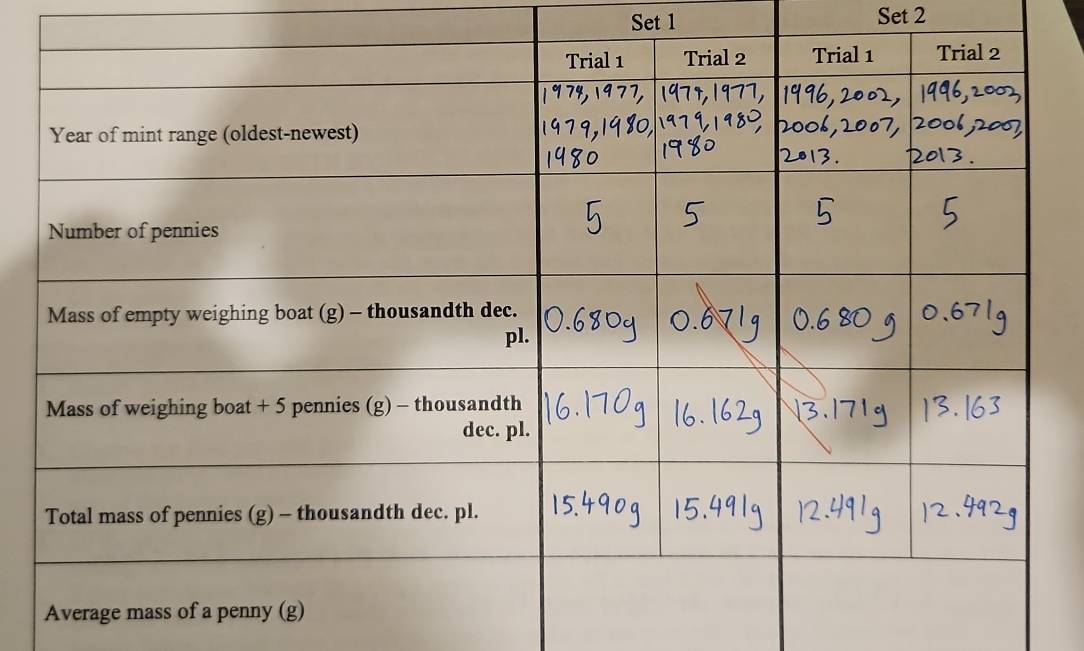 Set 1 Set 2
Trial 1 Trial 2 Trial 1 Trial 2
1974, 1977, 1974, 1977, 1996, 2002, 1996, 2002,
Year of mint range (oldest-newest) 1979, 1980, 1979, 1980, 2006, 2007, 2006, 2007,
1980 1980 2013. 2013.
Number of pennies 5 5 5 5
Mass of empty weighing boat (g) – thousandth dec. 0.680g 0.671g 0.680 g 0.671g
pl.
Mass of weighing boat + 5 pennies (g) – thousandth 16.170g 16.162g 13.171g 13.163
dec. pl.
Total mass of pennies (g) – thousandth dec. pl. 15.490g 15.491g 12.491g 12.492g
Average mass of a penny (g)